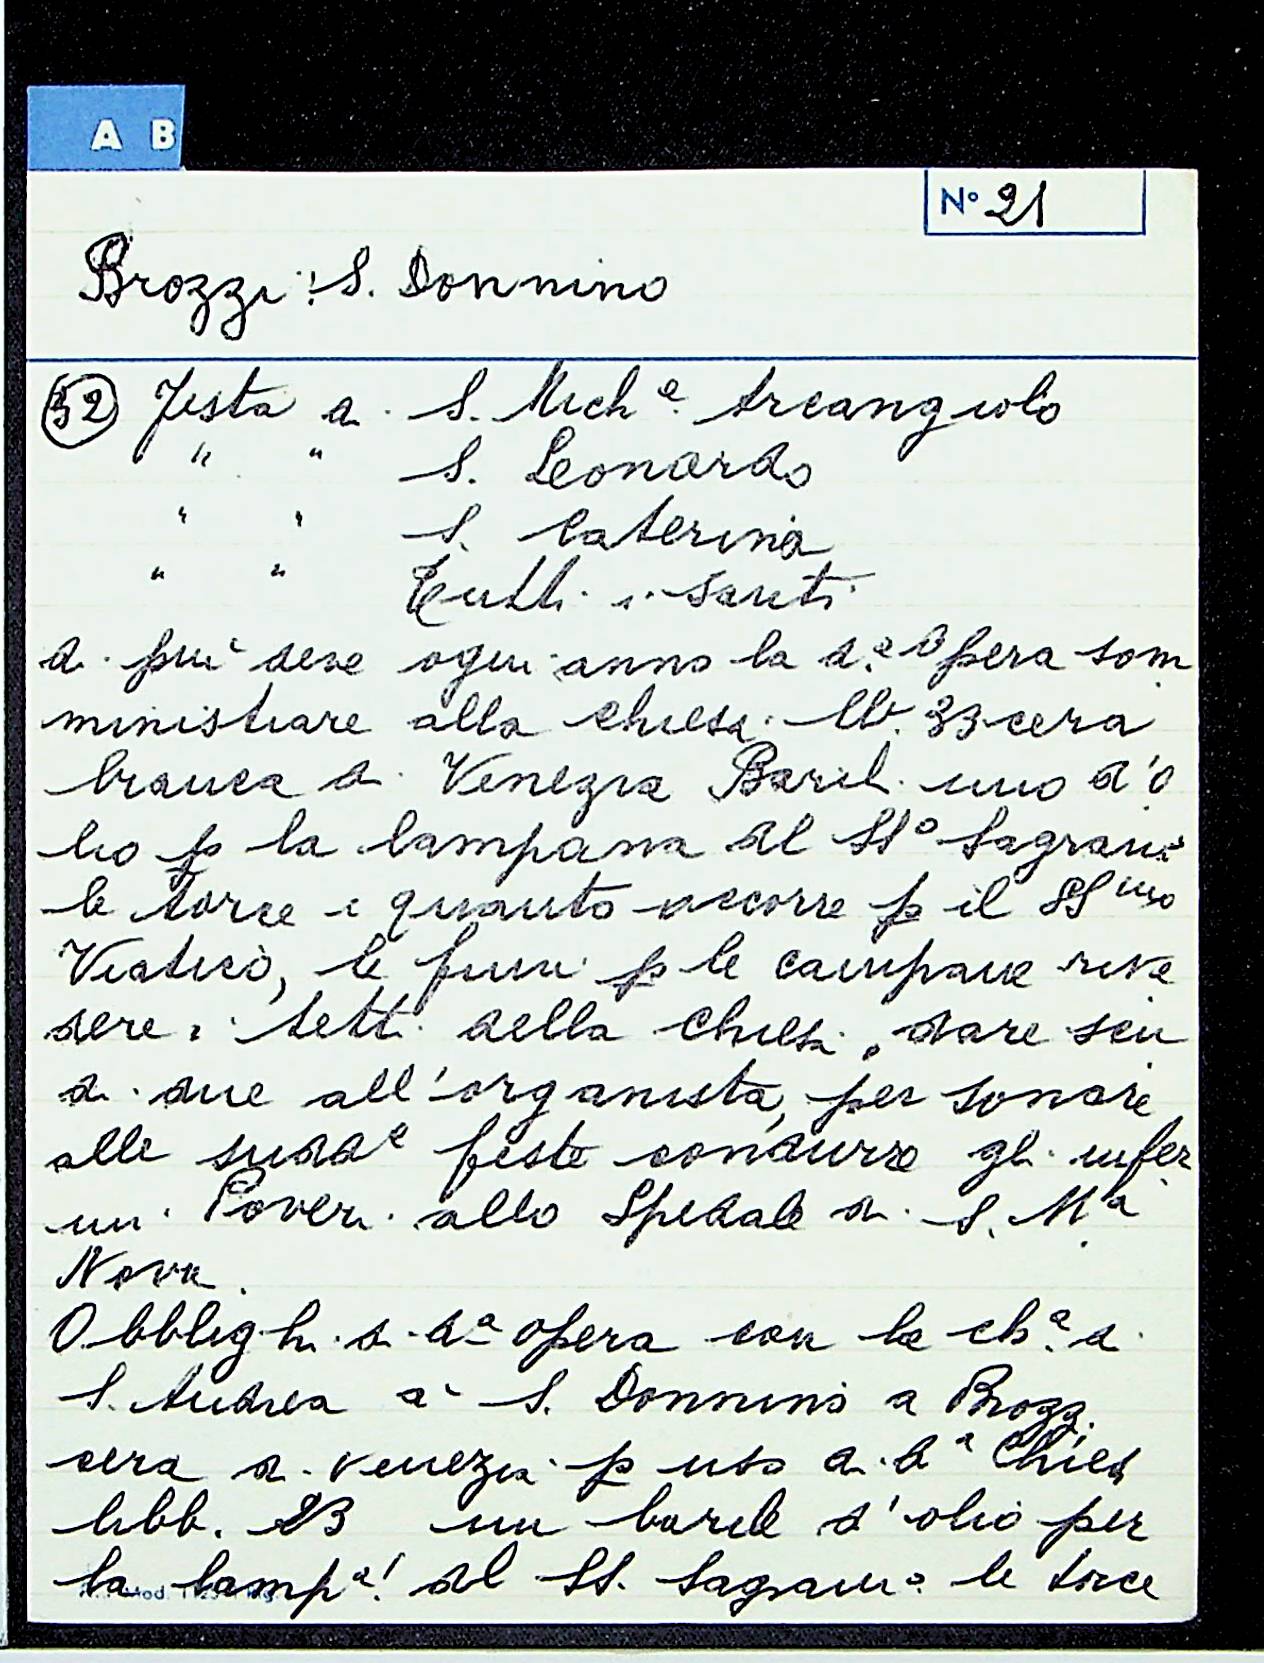 A B
N° 21
Brozzi: S. Donnino
32 Festa di S. Mich.e Arcangiolo
" " S. Leonardo
" " S. Caterina
" " Tutti i Santi
di più deve ogni anno la d.a Opera som
ministrare alla chiesa lb. 33 cera
bianca di Venezia Baril uno d'o
lio p la lampana del SS.o Sagram.
le torce e quanto occorre p il SS.mo
Viatico, le funi p le campane rive
dere i tetti della chiesa, dare scu
di due all'organista, per sonare
alle sudd.e feste condurre gli infer
mi Poveri allo Spedale di S. M.a
Nova.
Obblighi di d.a opera con la ch.a di
S. Andrea a S. Donnino a Brozzi
cera di venezia p uso di d.a Chiesa
libb. 23 un barile d'olio per
la lamp.a del SS. Sagram.o le torce